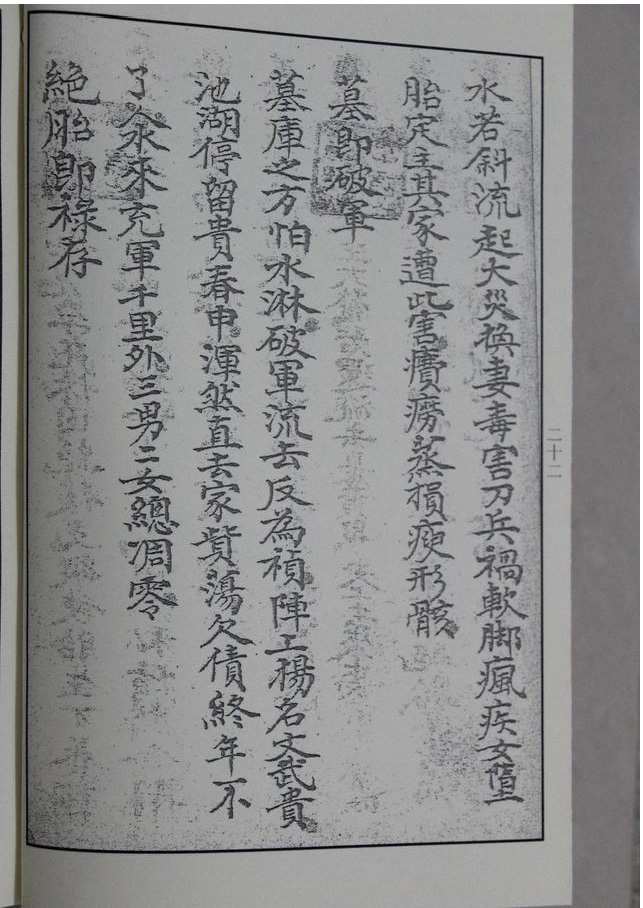 水若斜流起大災換妻毒害刀兵禍軟脚瘋疾女墮
胎定主其家遭此害癀癆蒸損瘐形骸
墓即破軍
墓庫之方怕水淋破軍流去反為禎陣上楊名文武貴
池湖停留貴春申渾然直去家貲蕩欠債終年不
了人永來充軍千里外三男二女總凋零
絶胎即祿存
二十二